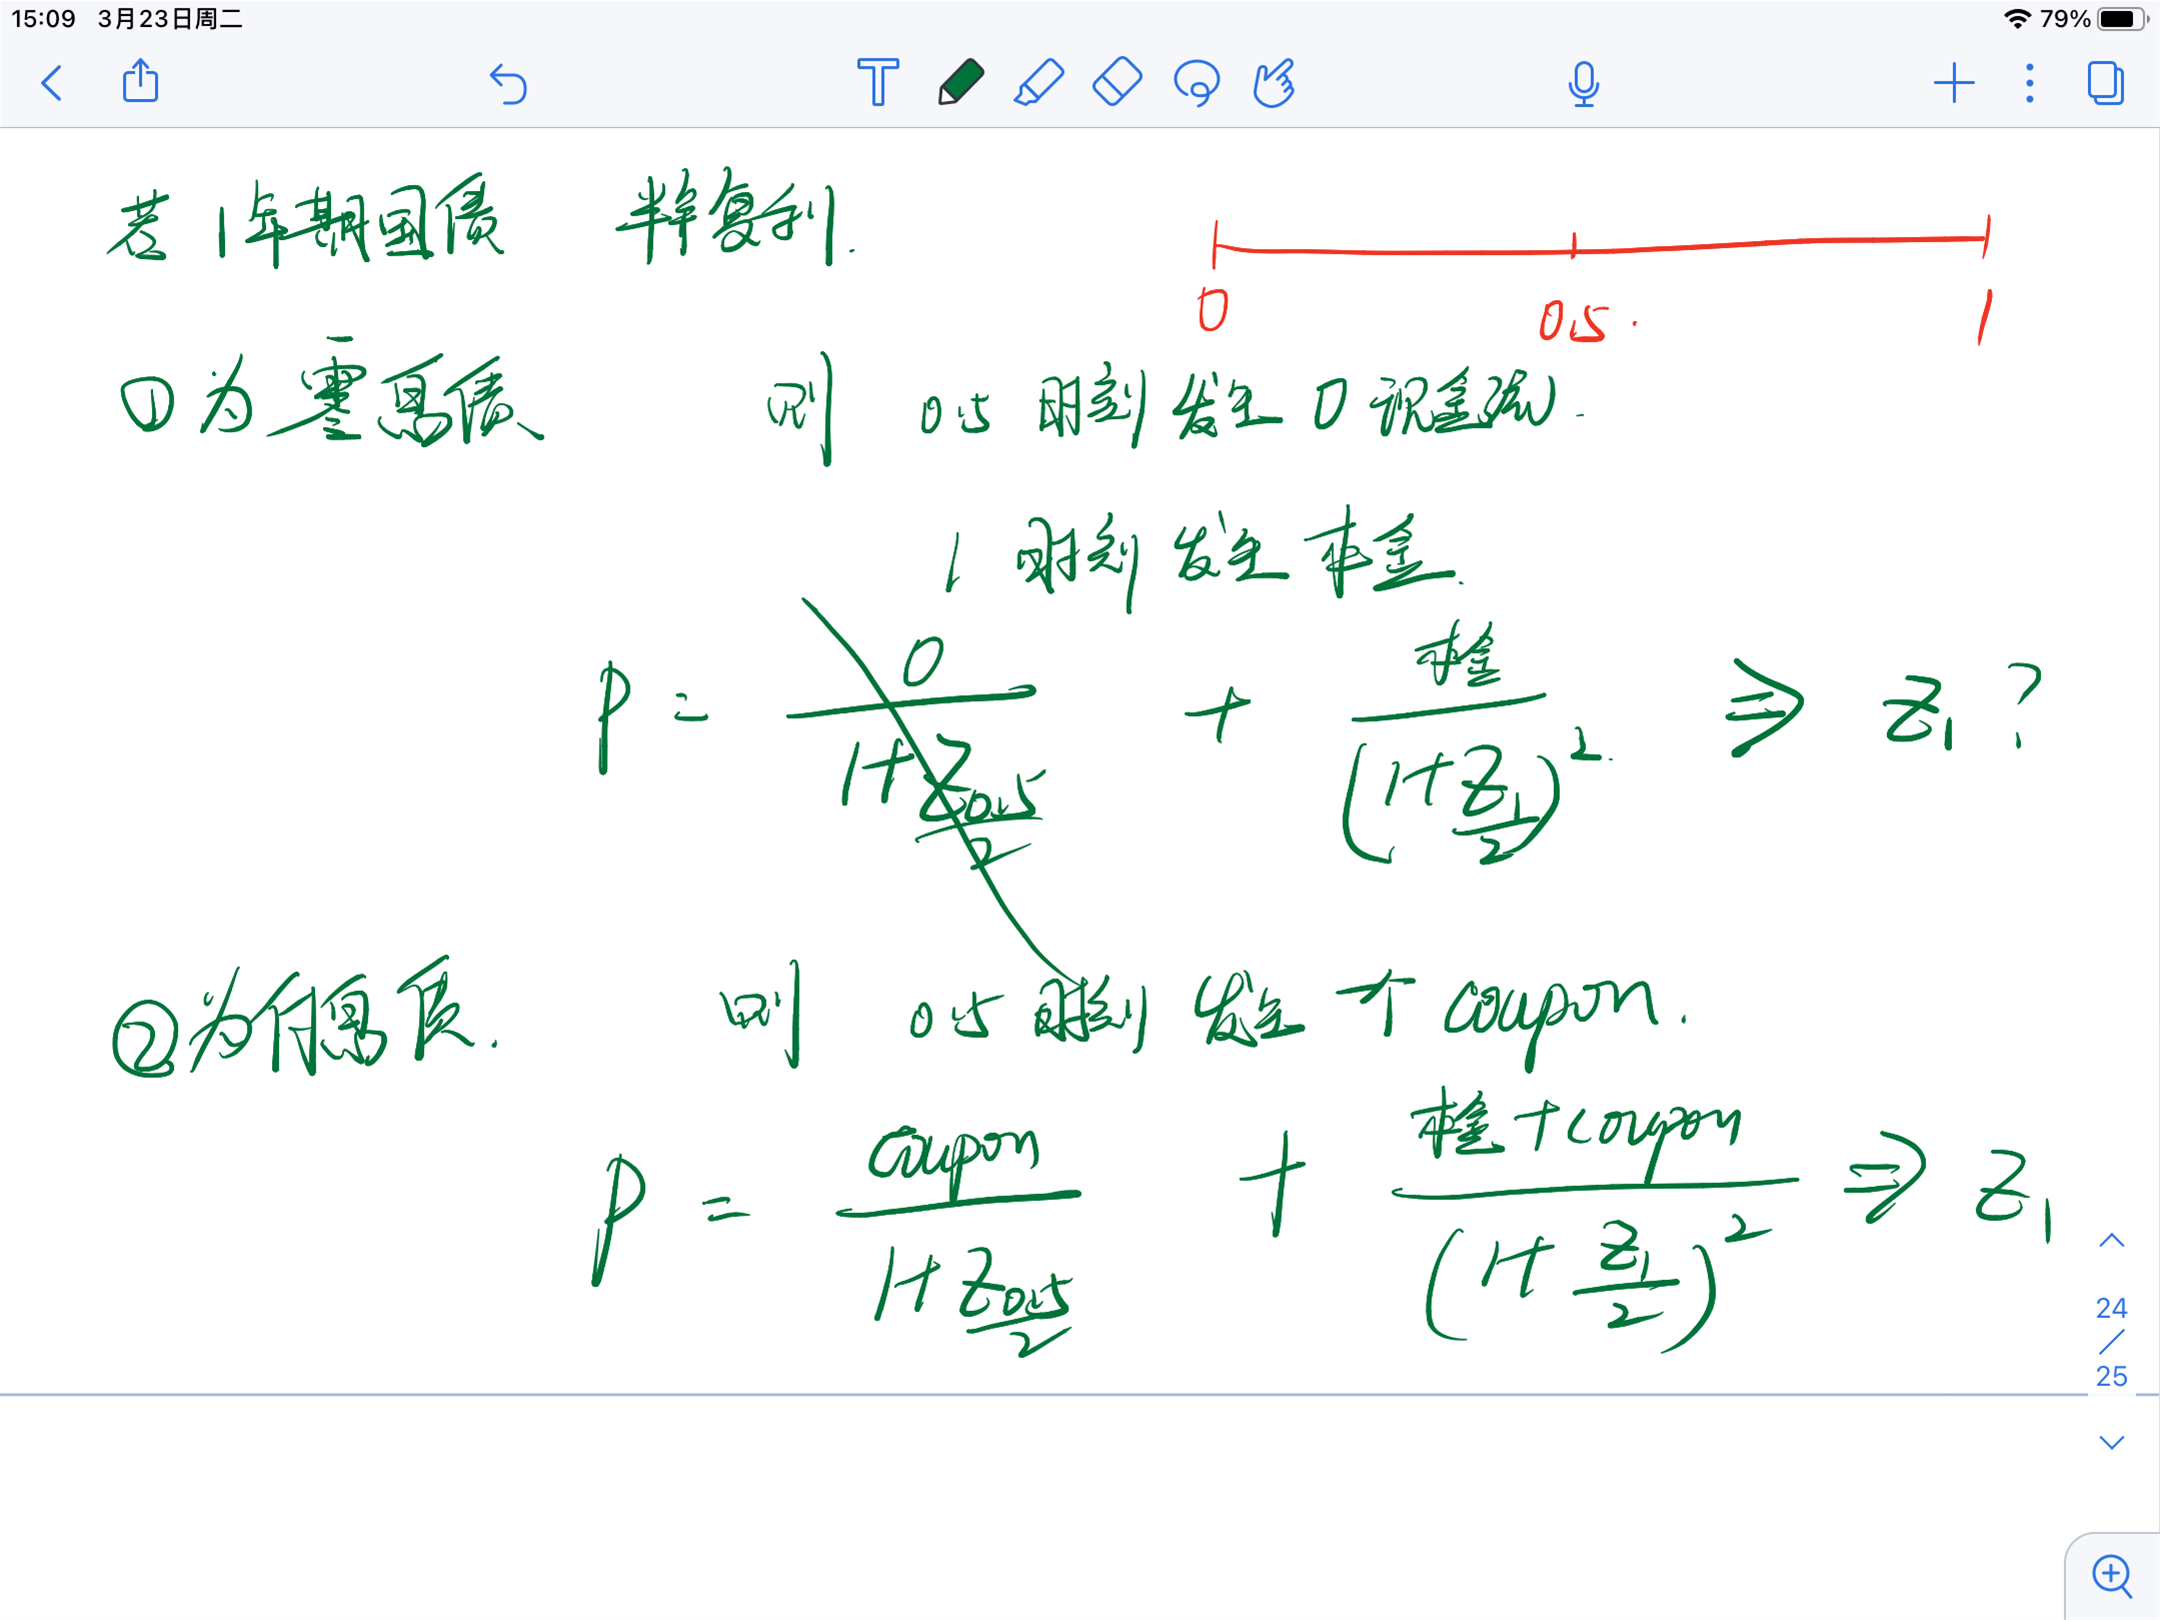 15:09 3月23日周二 79%
若 1年期国债 半年复利.
0 0.5. 1
①为零息债 则 0.5时刻发生0现金流.
1时刻发生本金.
P = 0/(1+Z0.5/2) + 本金/(1+Z1/2)^2. ⇒ Z1?
②为付息债. 则 0.5时刻发生个coupon.
P = coupon/(1+Z0.5/2) + (本金+coupon)/(1+Z1/2)^2 ⇒ Z1
24
/
25